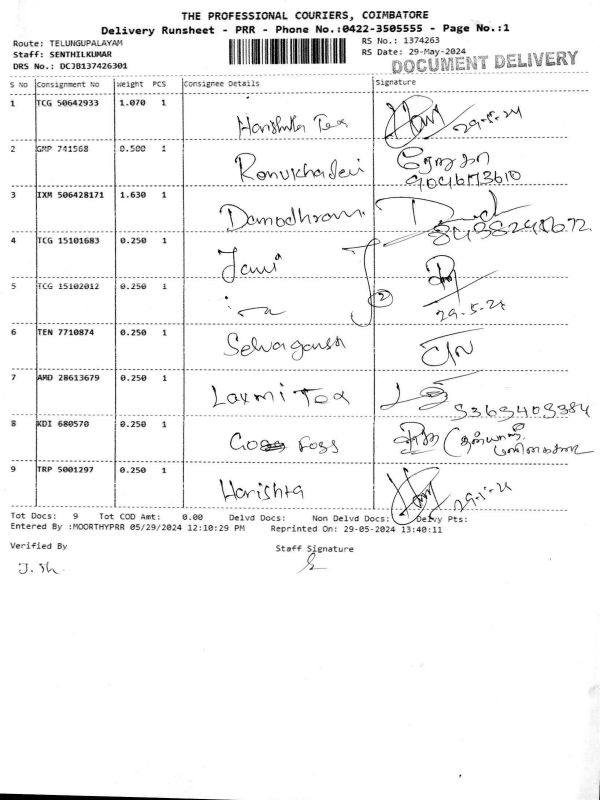 THE PROFESSIONAL COURIERS, COIMBATORE
Delivery Runsheet - PRR - Phone No.:0422-3505555 - Page No.:1
Route: TELUNGUPALAYAM RS No.: 1374263
Staff: SENTHILKUMAR RS Date: 29-May-2024
DRS No.: DCJB137426301 DOCUMENT DELIVERY
S No Consignment No Weight PCS Consignee Details Signature
1 TCG 50642933 1.070 1 Harishta Tex 29-5-24
2 GMP 741568 0.500 1 Ronukhadevi ரேணுகா
3 IXM 506428171 1.630 1 Damodhram
4 TCG 15101683 0.250 1 Jami
5 TCG 15102012 0.250 1 29-5-24
6 TEN 7710874 0.250 1
7 AMD 28613679 0.250 1 Laxmi Tex
8 KDI 680570 0.250 1
9 TRP 5001297 0.250 1 Harishta
Tot Docs: 9 Tot COD Amt: 0.00 Delvd Docs: Non Delvd Docs: Delvy Pts:
Entered By :MOORTHYPRR 05/29/2024 12:10:29 PM Reprinted On: 29-05-2024 13:40:11
Verified By Staff Signature